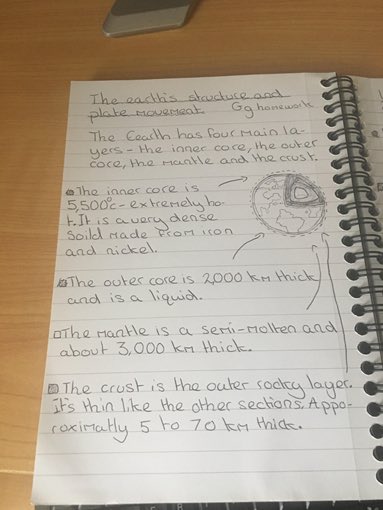 The earth's structure and
plate movement Gg homework
The Eearth has four main la-
yers - the inner core, the outer
core, the mantle and the crust.
The inner core is
5,500°c - extremely ho-
t. It is a very dense
soild made from iron
and nickel.
The outer core is 2,000 km thick
and is a liquid.
The mantle is a semi-molten and
about 3,000 km thick.
The crust is the outer rocky layer.
it's thin like the other sections. Appo-
roximatly 5 to 70 km thick.